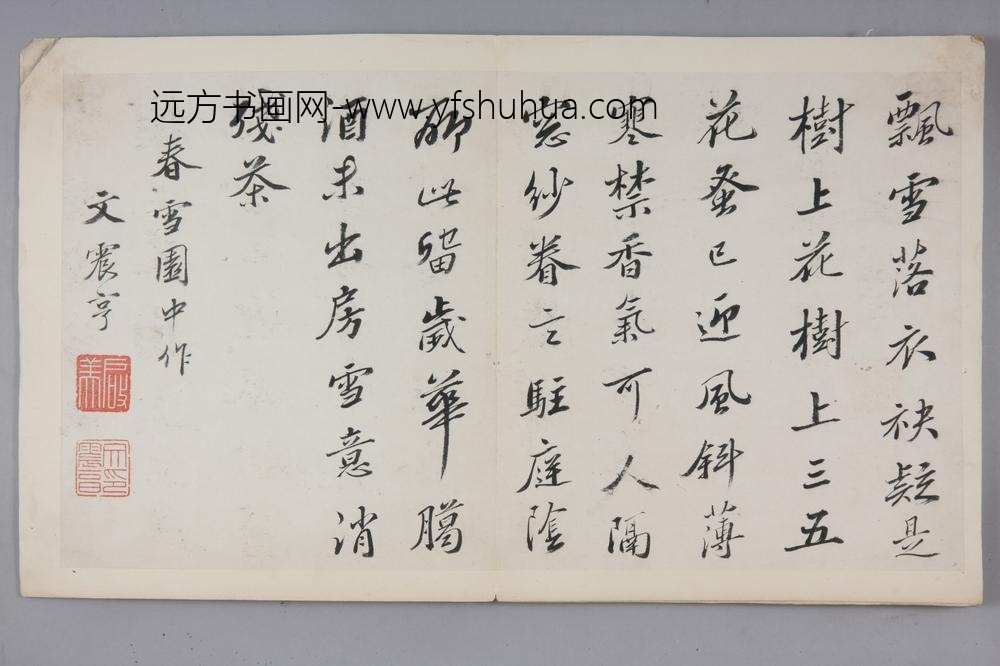 飄雪落衣袂疑是
樹上花樹上三五
花蚤已迎風斜薄
寒禁香氣可人隔
窓紗眷言駐庭陰
聊此留歲華臈
酒未出房雪意消
殘茶
春雪園中作
文震亨
啟美
远方书画网-www.yfshuhua.com